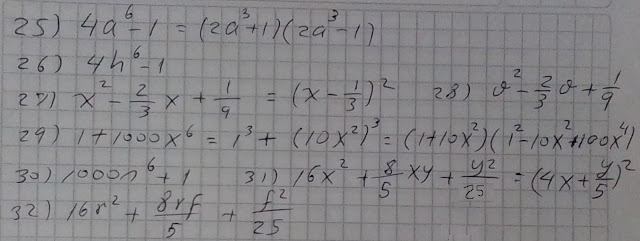 25) 4a⁶-1 = (2a³+1)(2a³-1)
26) 4h⁶-1
27) x² - 2/3 x + 1/9 = (x - 1/3)² 28) v² - 2/3 v + 1/9
29) 1+1000x⁶ = 1³ + (10x²)³ = (1+10x²)(1²-10x²+100x⁴)
30) 1000n⁶+1 31) 16x² + 8/5 xy + y²/25 = (4x + y/5)²
32) 16r² + 8rf/5 + f²/25